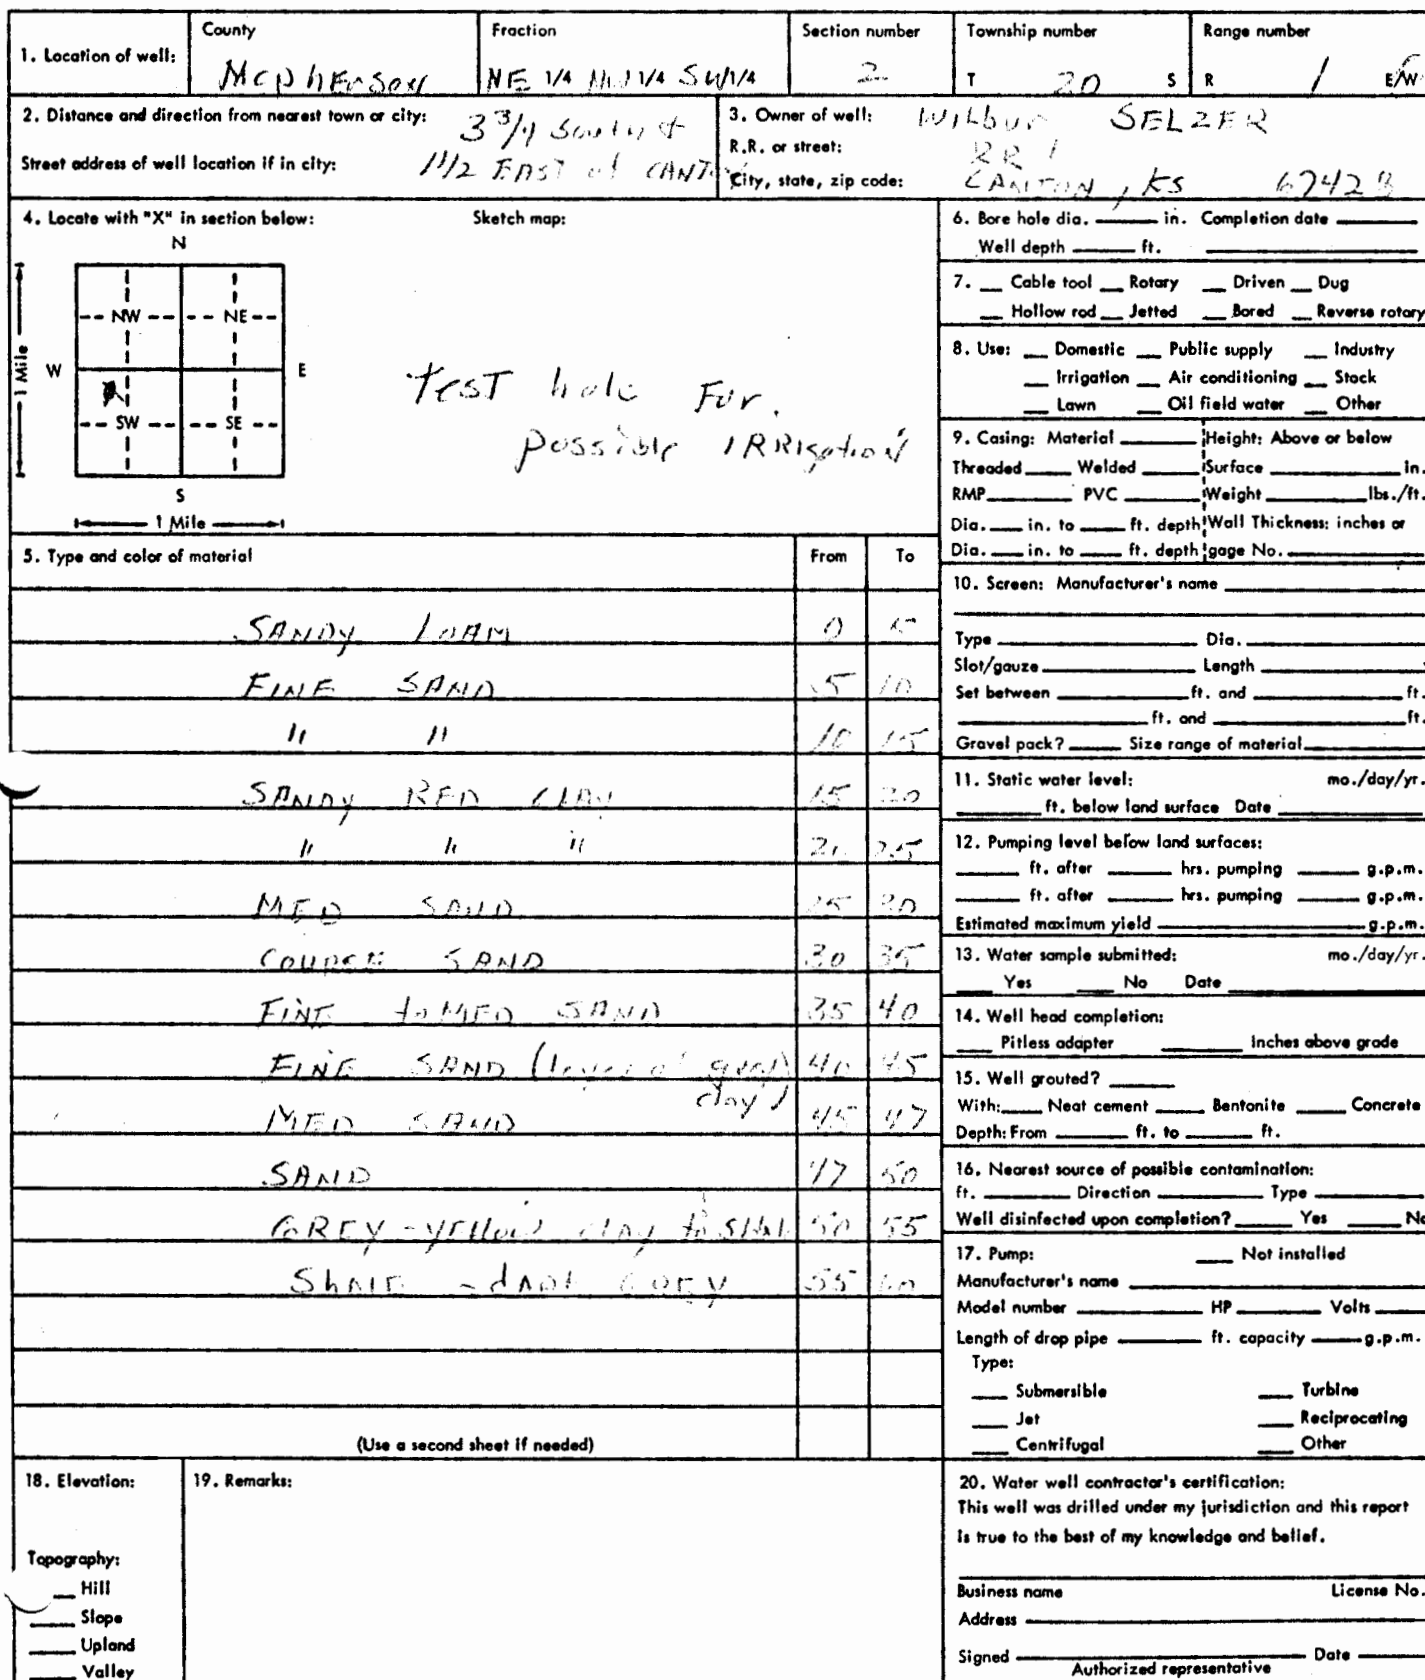 1. Location of well:
County
McPherson
Fraction
NE 1/4 NW 1/4 SW 1/4
Section number
2
Township number
T 20 S
Range number
R 1 E/W
2. Distance and direction from nearest town or city: 3 3/4 South &
Street address of well location if in city: 1 1/2 EAST of CANTON
3. Owner of well: Wilbur SELZER
R.R. or street: RR 1
City, state, zip code: CANTON, KS 67428
4. Locate with "X" in section below:
Sketch map:
N
NW NE
W E
SW SE
S
1 Mile
1 Mile
Test hole For.
possible IRRigation
5. Type and color of material From To
SANDY LOAM 0 5
FINE SAND 5 10
" " 10 15
SANDY RED CLAY 15 20
" " " 20 25
MED SAND 25 30
COURCE SAND 30 35
FINE to MED SAND 35 40
FINE SAND (layer of gray clay) 40 45
MED SAND 45 47
SAND 47 50
GREY-yellow clay to SHAL 50 55
ShALE - dARK GREY 55 60
(Use a second sheet if needed)
6. Bore hole dia. ____ in. Completion date ____
Well depth ____ ft. ____
7. __ Cable tool __ Rotary __ Driven __ Dug
__ Hollow rod __ Jetted __ Bored __ Reverse rotary
8. Use: __ Domestic __ Public supply __ Industry
__ Irrigation __ Air conditioning __ Stock
__ Lawn __ Oil field water __ Other
9. Casing: Material ____ Height: Above or below
Threaded ____ Welded ____ Surface ____ in.
RMP ____ PVC ____ Weight ____ lbs./ft.
Dia. ____ in. to ____ ft. depth Wall Thickness: inches or
Dia. ____ in. to ____ ft. depth gage No. ____
10. Screen: Manufacturer's name ____
Type ____ Dia. ____
Slot/gauze ____ Length ____
Set between ____ ft. and ____ ft.
____ ft. and ____ ft.
Gravel pack? ____ Size range of material ____
11. Static water level: mo./day/yr.
____ ft. below land surface Date ____
12. Pumping level below land surfaces:
____ ft. after ____ hrs. pumping ____ g.p.m.
____ ft. after ____ hrs. pumping ____ g.p.m.
Estimated maximum yield ____ g.p.m.
13. Water sample submitted: mo./day/yr.
____ Yes ____ No Date ____
14. Well head completion:
____ Pitless adapter ____ Inches above grade
15. Well grouted? ____
With: ____ Neat cement ____ Bentonite ____ Concrete
Depth: From ____ ft. to ____ ft.
16. Nearest source of possible contamination:
ft. ____ Direction ____ Type ____
Well disinfected upon completion? ____ Yes ____ No
17. Pump: ____ Not installed
Manufacturer's name ____
Model number ____ HP ____ Volts ____
Length of drop pipe ____ ft. capacity ____ g.p.m.
Type:
____ Submersible ____ Turbine
____ Jet ____ Reciprocating
____ Centrifugal ____ Other
18. Elevation:
Topography:
____ Hill
____ Slope
____ Upland
____ Valley
19. Remarks:
20. Water well contractor's certification:
This well was drilled under my jurisdiction and this report
is true to the best of my knowledge and belief.
Business name License No.
Address ____
Signed ____ Date ____
Authorized representative